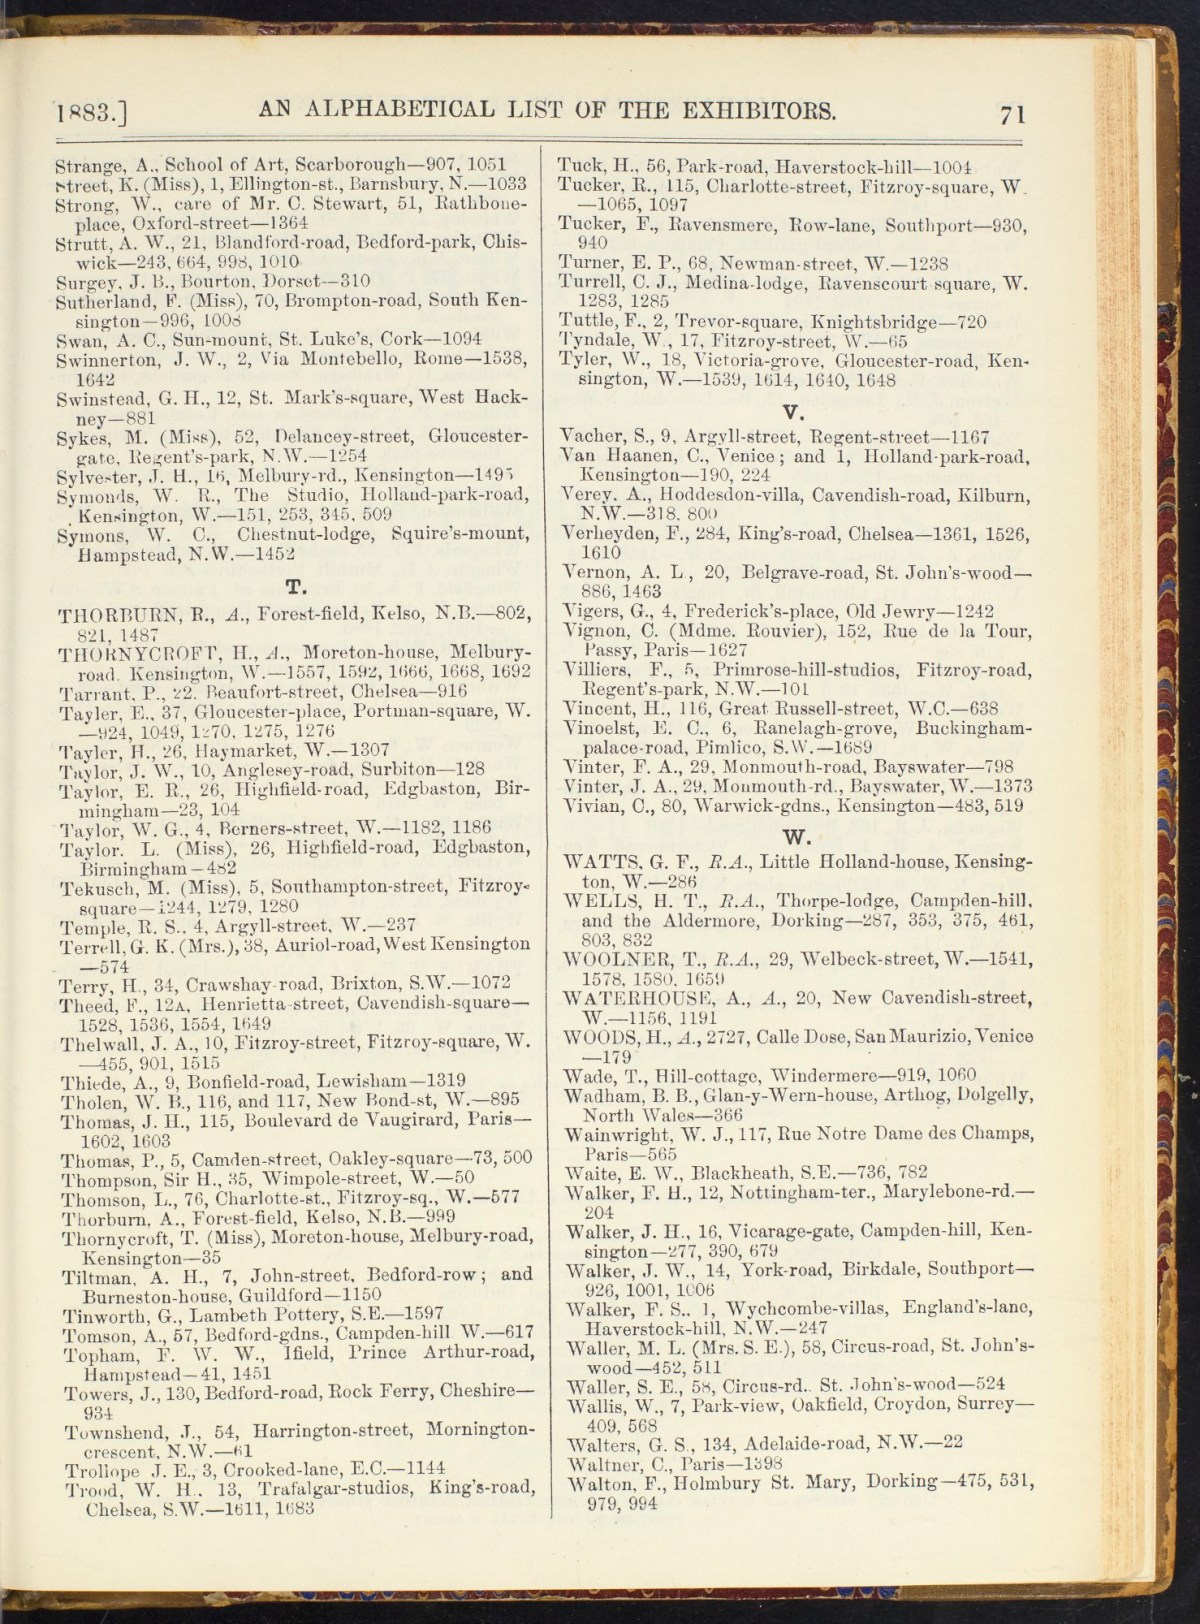 1883.]
AN ALPHABETICAL LIST OF THE EXHIBITORS.
71
Strange, A., School of Art, Scarborough—907, 1051
Street, K. (Miss), 1, Ellington-st., Barnsbury, N.—1033
Strong, W., care of Mr. C. Stewart, 51, Rathbone-
place, Oxford-street—1364
Strutt, A. W., 21, Blandford-road, Bedford-park, Chis-
wick—243, 664, 998, 1010
Surgey, J. B., Bourton, Dorset—310
Sutherland, F. (Miss), 70, Brompton-road, South Ken-
sington—996, 1008
Swan, A. C., Sun-mount, St. Luke's, Cork—1094
Swinnerton, J. W., 2, Via Montebello, Rome—1538,
1642
Swinstead, G. H., 12, St. Mark's-square, West Hack-
ney—881
Sykes, M. (Miss), 52, Delancey-street, Gloucester-
gate, Regent's-park, N.W.—1254
Sylvester, J. H., 16, Melbury-rd., Kensington—1495
Symonds, W. R., The Studio, Holland-park-road,
Kensington, W.—151, 253, 345, 509
Symons, W. C., Chestnut-lodge, Squire's-mount,
Hampstead, N.W.—1452
T.
THORBURN, R., A., Forest-field, Kelso, N.B.—802,
821, 1487
THORNYCROFT, H., A., Moreton-house, Melbury-
road, Kensington, W.—1557, 1592, 1666, 1668, 1692
Tarrant, P., 22, Beaufort-street, Chelsea—916
Tayler, E., 37, Gloucester-place, Portman-square, W.
—924, 1049, 1270, 1275, 1276
Tayler, H., 26, Haymarket, W.—1307
Taylor, J. W., 10, Anglesey-road, Surbiton—128
Taylor, E. R., 26, Highfield-road, Edgbaston, Bir-
mingham—23, 104
Taylor, W. G., 4, Berners-street, W.—1182, 1186
Taylor, L. (Miss), 26, Highfield-road, Edgbaston,
Birmingham—482
Tekusch, M. (Miss), 5, Southampton-street, Fitzroy-
square—1244, 1279, 1280
Temple, R. S., 4, Argyll-street, W.—237
Terrell, G. K. (Mrs.), 38, Auriol-road, West Kensington
—574
Terry, H., 34, Crawshay-road, Brixton, S.W.—1072
Theed, F., 12A, Henrietta-street, Cavendish-square—
1528, 1536, 1554, 1649
Thelwall, J. A., 10, Fitzroy-street, Fitzroy-square, W.
—455, 901, 1515
Thiede, A., 9, Bonfield-road, Lewisham—1319
Tholen, W. B., 116, and 117, New Bond-st, W.—895
Thomas, J. H., 115, Boulevard de Vaugirard, Paris—
1602, 1603
Thomas, P., 5, Camden-street, Oakley-square—73, 500
Thompson, Sir H., 35, Wimpole-street, W.—50
Thomson, L., 76, Charlotte-st., Fitzroy-sq., W.—577
Thorburn, A., Forest-field, Kelso, N.B.—999
Thornycroft, T. (Miss), Moreton-house, Melbury-road,
Kensington—35
Tiltman, A. H., 7, John-street, Bedford-row; and
Burneston-house, Guildford—1150
Tinworth, G., Lambeth Pottery, S.E.—1597
Tomson, A., 57, Bedford-gdns., Campden-hill W.—617
Topham, F. W. W., Ifield, Prince Arthur-road,
Hampstead—41, 1451
Towers, J., 130, Bedford-road, Rock Ferry, Cheshire—
934
Townshend, J., 54, Harrington-street, Mornington-
crescent, N.W.—61
Trollope J. E., 3, Crooked-lane, E.C.—1144
Trood, W. H., 13, Trafalgar-studios, King's-road,
Chelsea, S.W.—1611, 1683
Tuck, H., 56, Park-road, Haverstock-hill—1004
Tucker, R., 115, Charlotte-street, Fitzroy-square, W.
—1065, 1097
Tucker, F., Ravensmere, Row-lane, Southport—930,
940
Turner, E. P., 68, Newman-street, W.—1238
Turrell, C. J., Medina-lodge, Ravenscourt square, W.
1283, 1285
Tuttle, F., 2, Trevor-square, Knightsbridge—720
Tyndale, W., 17, Fitzroy-street, W.—65
Tyler, W., 18, Victoria-grove, Gloucester-road, Ken-
sington, W.—1539, 1614, 1640, 1648
V.
Vacher, S., 9, Argyll-street, Regent-street—1167
Van Haanen, C., Venice; and 1, Holland-park-road,
Kensington—190, 224
Verey, A., Hoddesdon-villa, Cavendish-road, Kilburn,
N.W.—318, 800
Verheyden, F., 284, King's-road, Chelsea—1361, 1526,
1610
Vernon, A. L., 20, Belgrave-road, St. John's-wood—
886, 1463
Vigers, G., 4, Frederick's-place, Old Jewry—1242
Vignon, C. (Mdme. Rouvier), 152, Rue de la Tour,
Passy, Paris—1627
Villiers, F., 5, Primrose-hill-studios, Fitzroy-road,
Regent's-park, N.W.—101
Vincent, H., 116, Great Russell-street, W.C.—638
Vinoelst, E. C., 6, Ranelagh-grove, Buckingham-
palace-road, Pimlico, S.W.—1689
Vinter, F. A., 29, Monmouth-road, Bayswater—798
Vinter, J. A., 29, Monmouth-rd., Bayswater, W.—1373
Vivian, C., 80, Warwick-gdns., Kensington—483, 519
W.
WATTS, G. F., R.A., Little Holland-house, Kensing-
ton, W.—286
WELLS, H. T., R.A., Thorpe-lodge, Campden-hill,
and the Aldermore, Dorking—287, 353, 375, 461,
803, 832
WOOLNER, T., R.A., 29, Welbeck-street, W.—1541,
1578, 1580, 1659
WATERHOUSE, A., A., 20, New Cavendish-street,
W.—1156, 1191
WOODS, H., A., 2727, Calle Dose, San Maurizio, Venice
—179
Wade, T., Hill-cottage, Windermere—919, 1060
Wadham, B. B., Glan-y-Wern-house, Arthog, Dolgelly,
North Wales—366
Wainwright, W. J., 117, Rue Notre Dame des Champs,
Paris—565
Waite, E. W., Blackheath, S.E.—736, 782
Walker, F. H., 12, Nottingham-ter., Marylebone-rd.—
204
Walker, J. H., 16, Vicarage-gate, Campden-hill, Ken-
sington—277, 390, 679
Walker, J. W., 14, York-road, Birkdale, Southport—
926, 1001, 1006
Walker, F. S., 1, Wychcombe-villas, England's-lane,
Haverstock-hill, N.W.—247
Waller, M. L. (Mrs. S. E.), 58, Circus-road, St. John's-
wood—452, 511
Waller, S. E., 58, Circus-rd., St. John's-wood—524
Wallis, W., 7, Park-view, Oakfield, Croydon, Surrey—
409, 568
Walters, G. S., 134, Adelaide-road, N.W.—22
Waltner, C., Paris—1398
Walton, F., Holmbury St. Mary, Dorking—475, 531,
979, 994